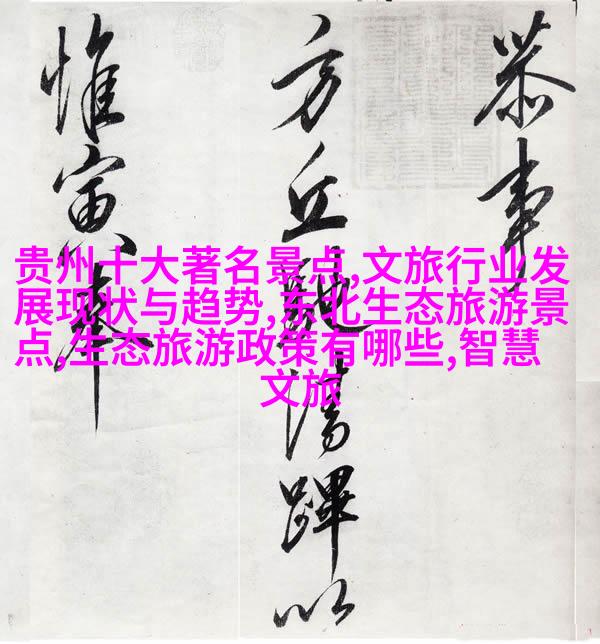 恭事
方丘清蹕以
惟寅奉
贵州十大著名景点,文旅行业发
展现状与趋势,东北生态旅游景
点,生态旅游政策有哪些,智慧
文旅